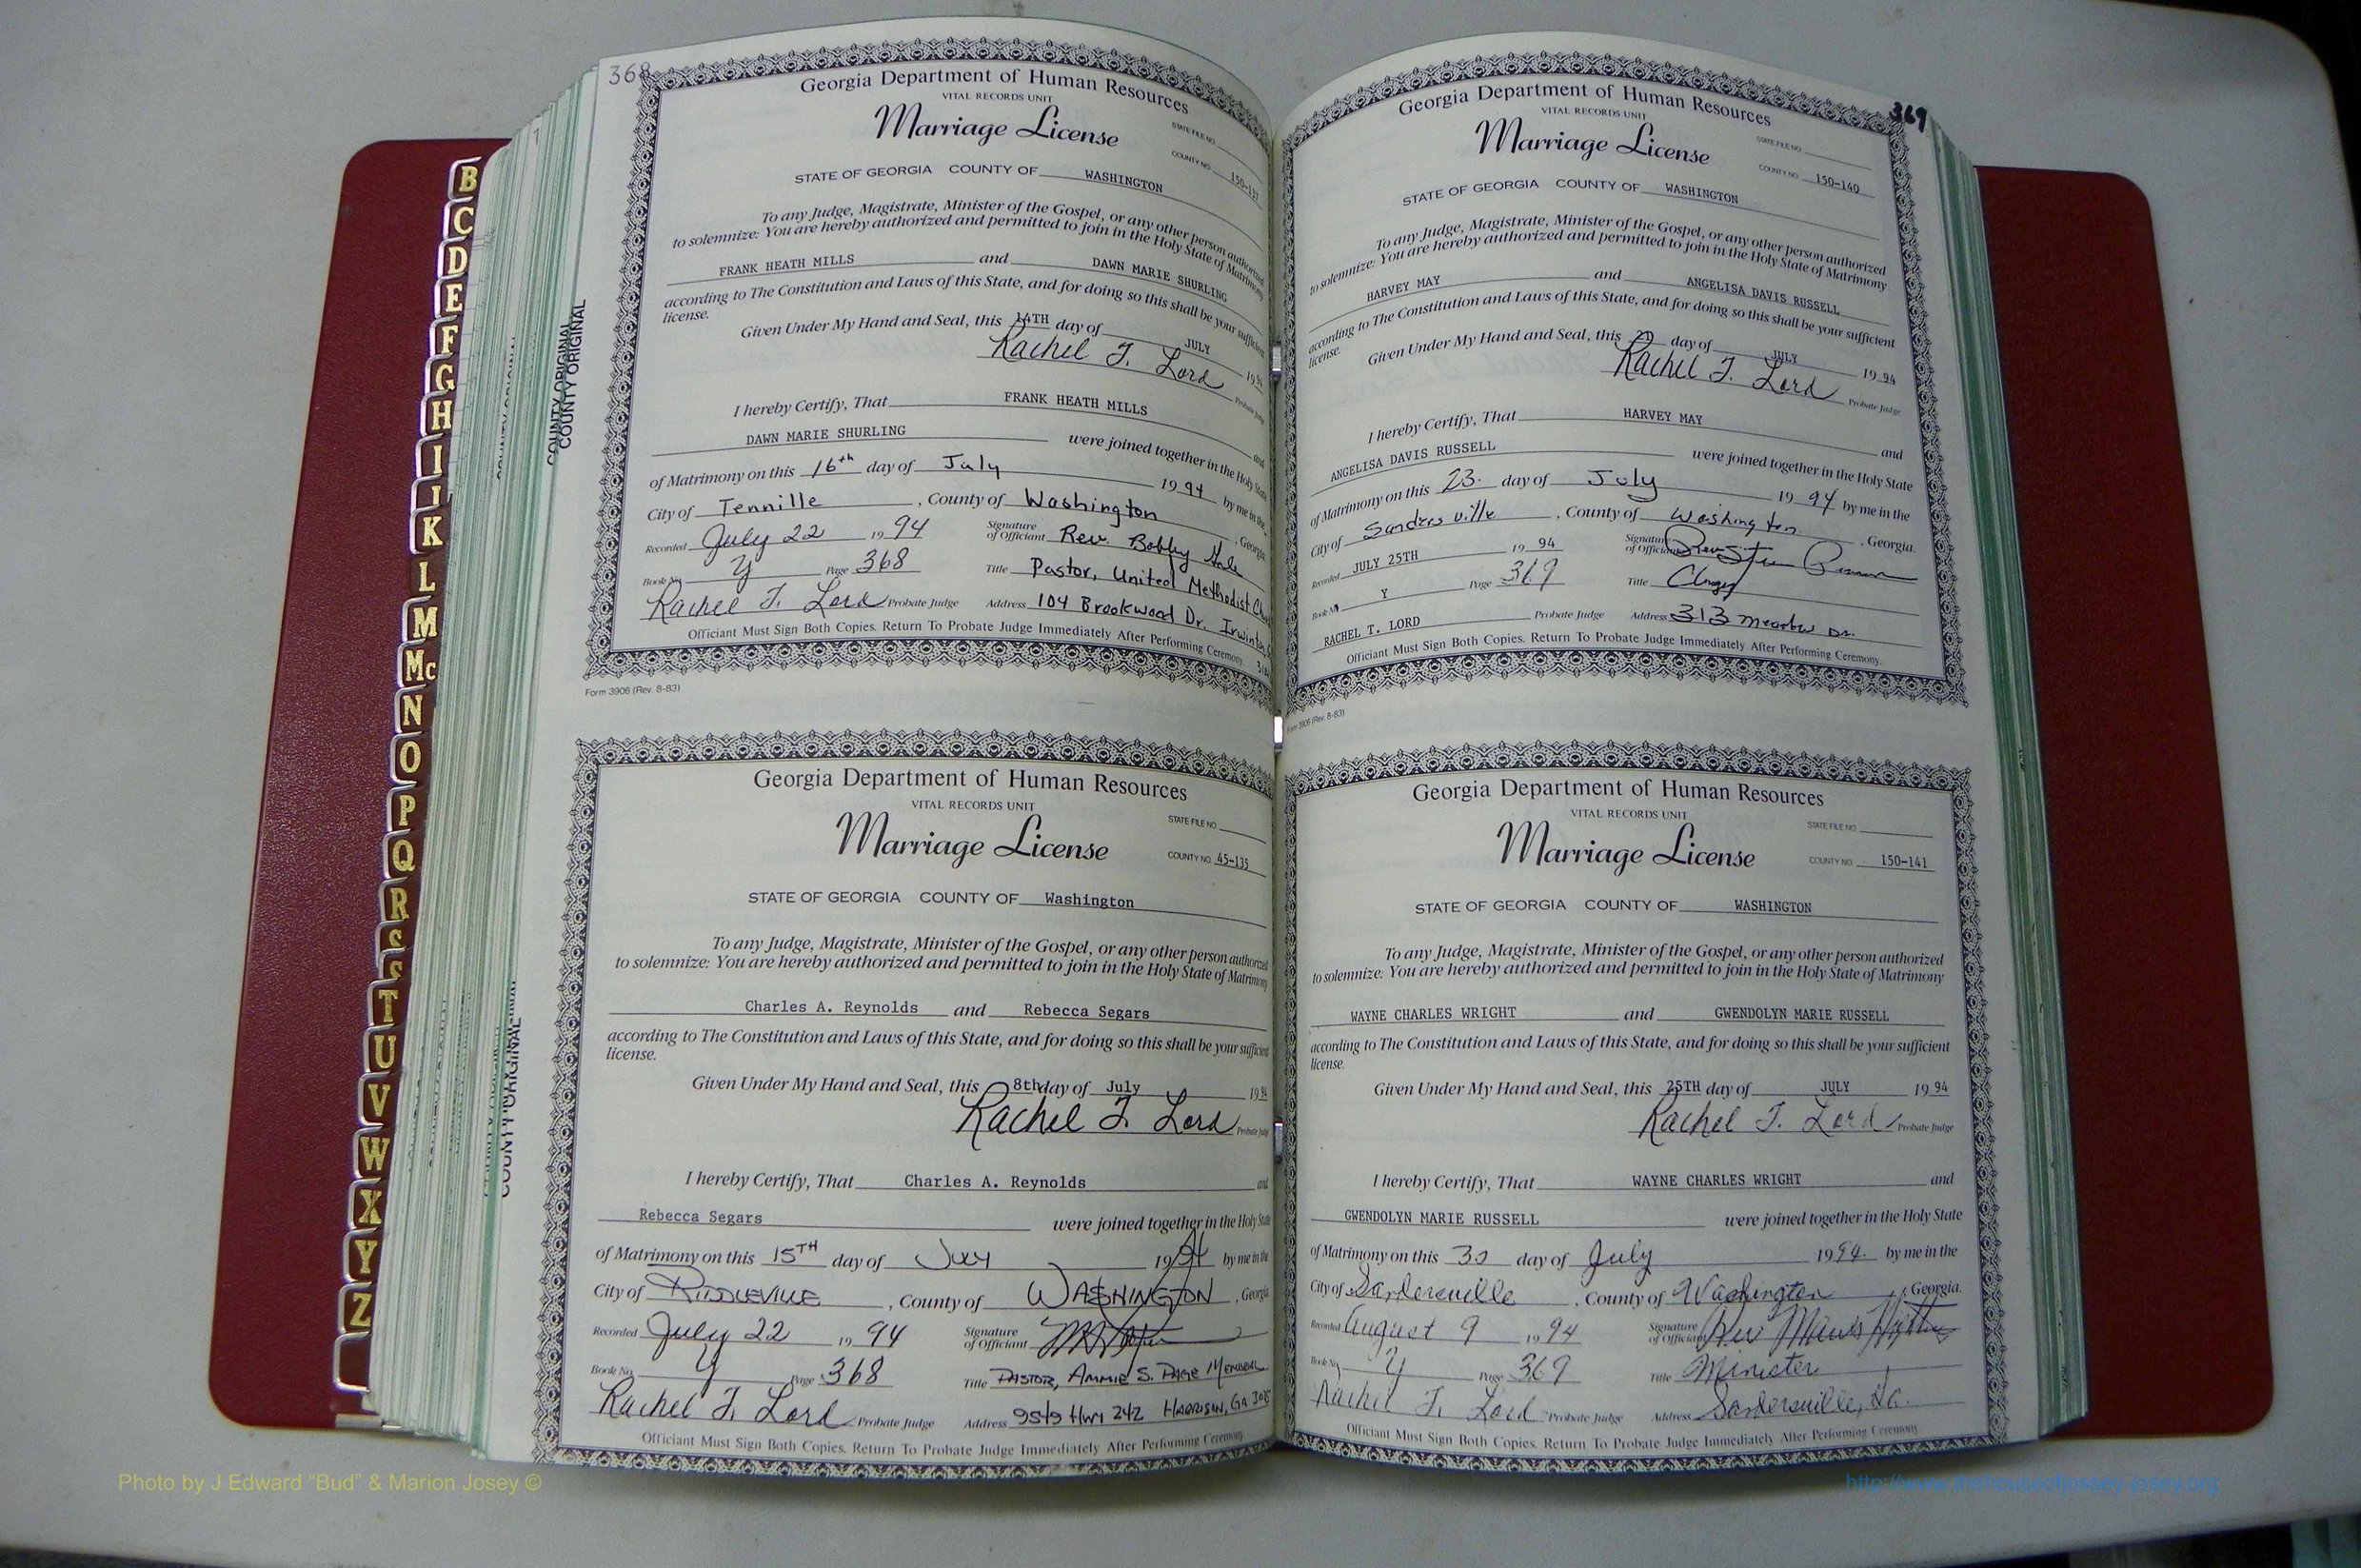 B
C
D
E
F
G
H
I
J
K
L
M
Mc
N
O
P
Q
R
S
T
U
V
W
X
Y
Z
COUNTY ORIGINAL
COUNTY ORIGINAL
368
Georgia Department of Human Resources
VITAL RECORDS UNIT
Marriage License
STATE FILE NO.
COUNTY NO. 150-137
STATE OF GEORGIA COUNTY OF WASHINGTON
To any Judge, Magistrate, Minister of the Gospel, or any other person authorized
to solemnize: You are hereby authorized and permitted to join in the Holy State of Matrimony
FRANK HEATH MILLS and DAWN MARIE SHURLING
according to The Constitution and Laws of this State, and for doing so this shall be your sufficient
license.
Given Under My Hand and Seal, this 14TH day of JULY 19 94
Rachel T. Lord Probate Judge
I hereby Certify, That FRANK HEATH MILLS and
DAWN MARIE SHURLING were joined together in the Holy State
of Matrimony on this 16th day of July 19 94 by me in the
City of Tennille, County of Washington, Georgia
Recorded July 22 19 94 Signature of Officiant Rev. Bobby Gale
Book No. Y Page 368 Title Pastor, United Methodist
Rachel T. Lord Probate Judge Address 104 Brookwood Dr.
Officiant Must Sign Both Copies. Return To Probate Judge Immediately After Performing Ceremony.
Form 3906 (Rev. 8-83)
Georgia Department of Human Resources
VITAL RECORDS UNIT
Marriage License
STATE FILE NO.
COUNTY NO. 45-135
STATE OF GEORGIA COUNTY OF Washington
To any Judge, Magistrate, Minister of the Gospel, or any other person authorized
to solemnize: You are hereby authorized and permitted to join in the Holy State of Matrimony
Charles A. Reynolds and Rebecca Segars
according to The Constitution and Laws of this State, and for doing so this shall be your sufficient
license.
Given Under My Hand and Seal, this 8th day of July 19 94
Rachel T. Lord Probate Judge
I hereby Certify, That Charles A. Reynolds and
Rebecca Segars were joined together in the Holy State
of Matrimony on this 15TH day of July 19 94 by me in the
City of RIDDLEVILLE, County of WASHINGTON, Georgia
Recorded July 22 19 94 Signature of Officiant
Book No. Y Page 368 Title PASTOR, AMMIE S. PAGE
Rachel T. Lord Probate Judge Address 9519 HWY 242 HARRISON, GA
Officiant Must Sign Both Copies. Return To Probate Judge Immediately After Performing Ceremony.
369
Georgia Department of Human Resources
VITAL RECORDS UNIT
Marriage License
STATE FILE NO.
COUNTY NO. 150-140
STATE OF GEORGIA COUNTY OF WASHINGTON
To any Judge, Magistrate, Minister of the Gospel, or any other person authorized
to solemnize: You are hereby authorized and permitted to join in the Holy State of Matrimony
HARVEY MAY and ANGELISA DAVIS RUSSELL
according to The Constitution and Laws of this State, and for doing so this shall be your sufficient
license.
Given Under My Hand and Seal, this day of JULY 19 94
Rachel T. Lord Probate Judge
I hereby Certify, That HARVEY MAY and
ANGELISA DAVIS RUSSELL were joined together in the Holy State
of Matrimony on this 23. day of July 19 94 by me in the
City of Sandersville, County of Washington, Georgia.
Recorded JULY 25TH 19 94 Signature of Officiant
Book No. Y Page 369 Title Clergy
RACHEL T. LORD Probate Judge Address 313 Meadow Dr.
Officiant Must Sign Both Copies. Return To Probate Judge Immediately After Performing Ceremony.
Form 3906 (Rev. 8-83)
Georgia Department of Human Resources
VITAL RECORDS UNIT
Marriage License
STATE FILE NO.
COUNTY NO. 150-141
STATE OF GEORGIA COUNTY OF WASHINGTON
To any Judge, Magistrate, Minister of the Gospel, or any other person authorized
to solemnize: You are hereby authorized and permitted to join in the Holy State of Matrimony
WAYNE CHARLES WRIGHT and GWENDOLYN MARIE RUSSELL
according to The Constitution and Laws of this State, and for doing so this shall be your sufficient
license.
Given Under My Hand and Seal, this 25TH day of JULY 19 94
Rachel T. Lord Probate Judge
I hereby Certify, That WAYNE CHARLES WRIGHT and
GWENDOLYN MARIE RUSSELL were joined together in the Holy State
of Matrimony on this 30 day of July 1994. by me in the
City of Sandersville, County of Washington, Georgia.
Recorded August 9 19 94 Signature of Officiant Rev
Book No. Y Page 369 Title Minister
Rachel T. Lord Probate Judge Address Sandersville, Ga.
Officiant Must Sign Both Copies. Return To Probate Judge Immediately After Performing Ceremony
Photo by J Edward "Bud" & Marion Josey ©
http://www.thehouseofjossey-josey.org